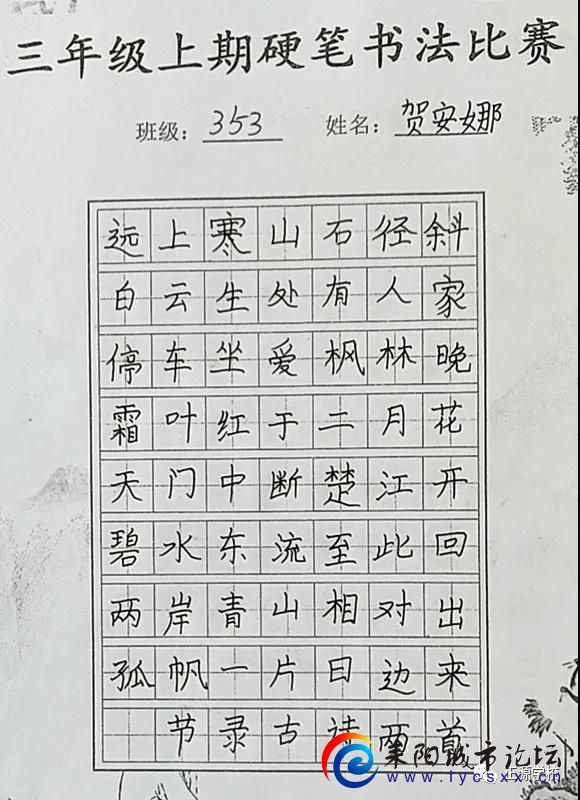 三年级上期硬笔书法比赛
班级: 353 姓名: 贺安娜
远上寒山石径斜
白云生处有人家
停车坐爱枫林晚
霜叶红于二月花
天门中断楚江开
碧水东流至此回
两岸青山相对出
孤帆一片日边来
节录古诗两首
耒阳城市论坛
www.lycs.com.cn
正源学校